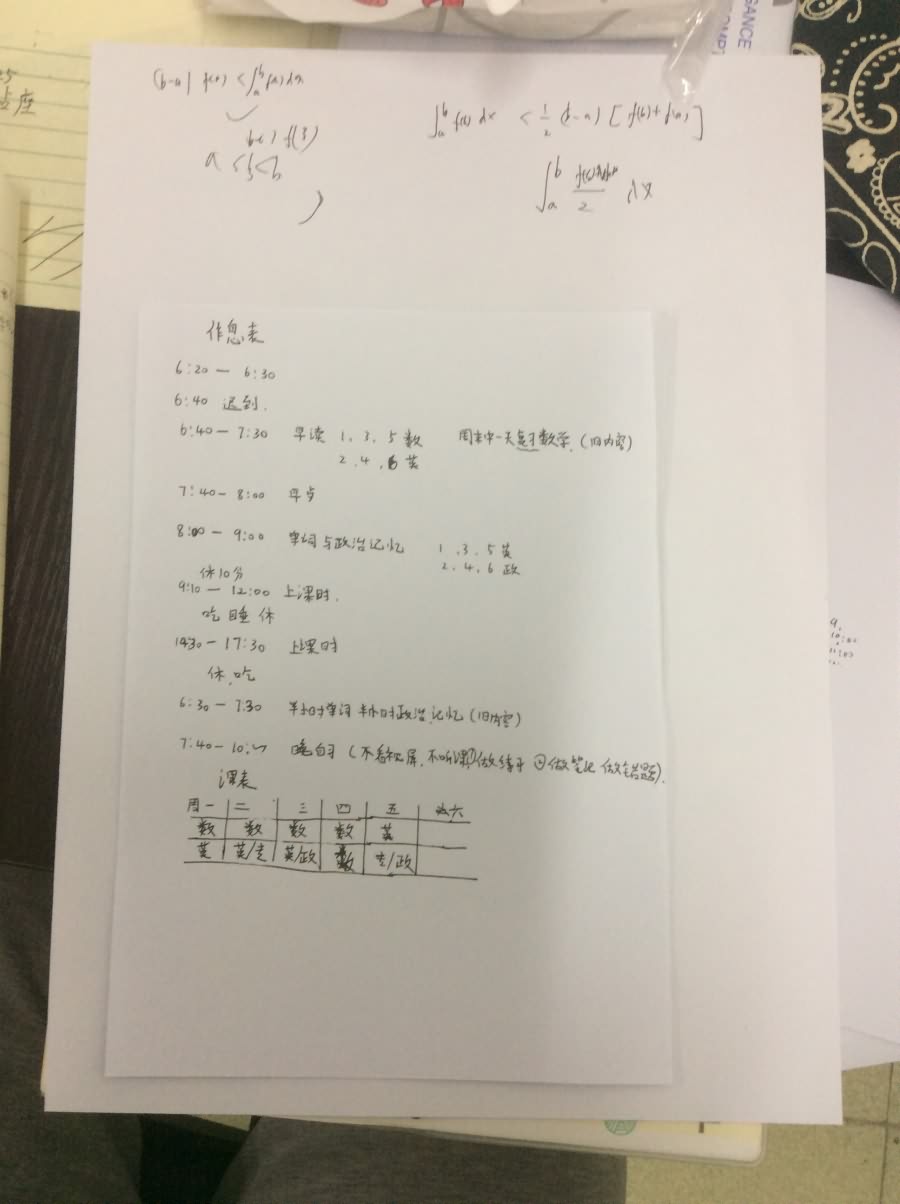 (b-a) f(a) < ∫_a^b f(x) dx
∫_a^b f(x) dx < 1/2 (b-a) [f(b)+f(a)]
f(ξ)
a < ξ < b
∫_a^b 2 dx
作息表
6:20 — 6:30
6:40 迟到.
6:40 — 7:30 早读 1、3、5 数 周末中一天复习数学.(旧内容)
2、4、6 英
7:40 — 8:00 早点
8:00 — 9:00 单词与政治记忆 1、3、5 英
2、4、6 政
休10分
9:10 — 12:00 上课时.
吃 睡 休
14:30 — 17:30 上课时
休、吃
6:30 — 7:30 半小时单词 半小时政治记忆(旧内容)
7:40 — 10: 晚自习(不看视屏,不听课①做练习 ②做笔记 做错题).
课表
周一 二 三 四 五 六
数 数 数 数 英
英 英/专 英/政 数 专/政
GANCE
OMPT
座